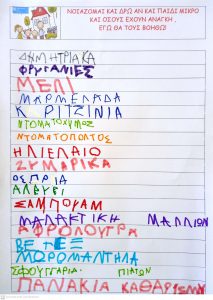 ΝΟΙΑΖΟΜΑΙ ΚΑΙ ΔΡΩ ΑΝ ΚΑΙ ΠΑΙΔΙ ΜΙΚΡΟ
ΚΑΙ ΟΣΟΥΣ ΕΧΟΥΝ ΑΝΑΓΚΗ ,
ΕΓΩ ΘΑ ΤΟΥΣ ΒΟΗΘΩ
ΔΗΜΗΤΡΙΑΚΑ
ΦΡΥΓΑΝΙΕΣ
ΜΕΛΙ
ΜΑΡΜΕΛΑΔΑ
ΚΡΙΤΣΙΝΙΑ
ΝΤΟΜΑΤΟΧΥΜΟΣ
ΝΤΟΜΑΤΟΠΟΛΤΟΣ
ΗΛΙΕΛΑΙΟ
ΖΥΜΑΡΙΚΑ
ΟΣΠΡΙΑ
ΑΛΕΥΡΙ
ΣΑΜΠΟΥΑΝ
ΜΑΛΑΚΤΙΚΗ ΜΑΛΛΙΩΝ
ΑΦΡΟΛΟΥΤΡΑ
ΒΕΤΕΞ
ΜΩΡΟΜΑΝΤΗΛΑ
ΣΦΟΥΓΓΑΡΙΑ ΠΙΑΤΩΝ
ΠΑΝΑΚΙΑ ΚΑΘΑΡΙΣΜΟΥ